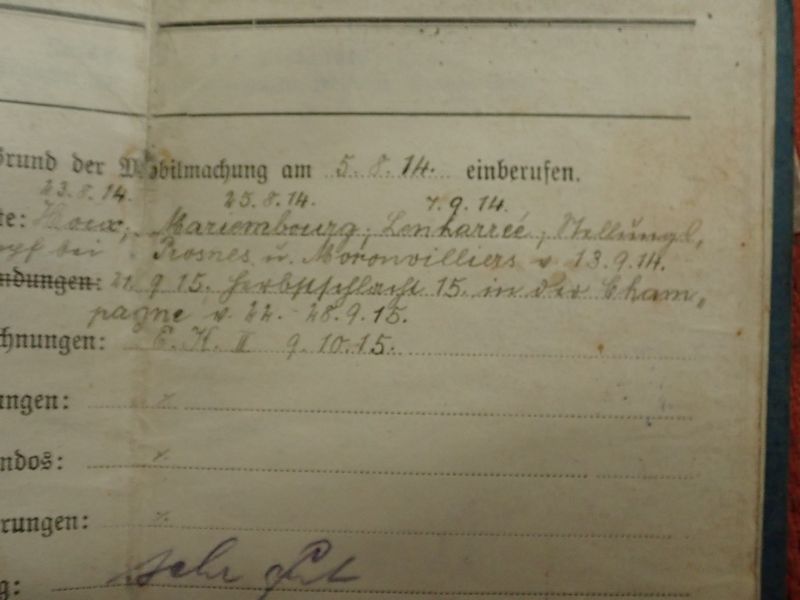 Grund der Mobilmachung am 5.8.14. einberufen.
23.8.14. 25.8.14. 7.9.14.
te: Houx, Mariembourg, Lenharrée, Stellungs,
pf bei Prosnes u. Moronvilliers v. 13.9.14.
ndungen: 21.9.15. Herbstschlacht 15. in der Cham-
pagne v. 22.-28.9.15.
chnungen: E. K. II 9.10.15.
ungen:
ndos:
rungen:
g: sehr gut